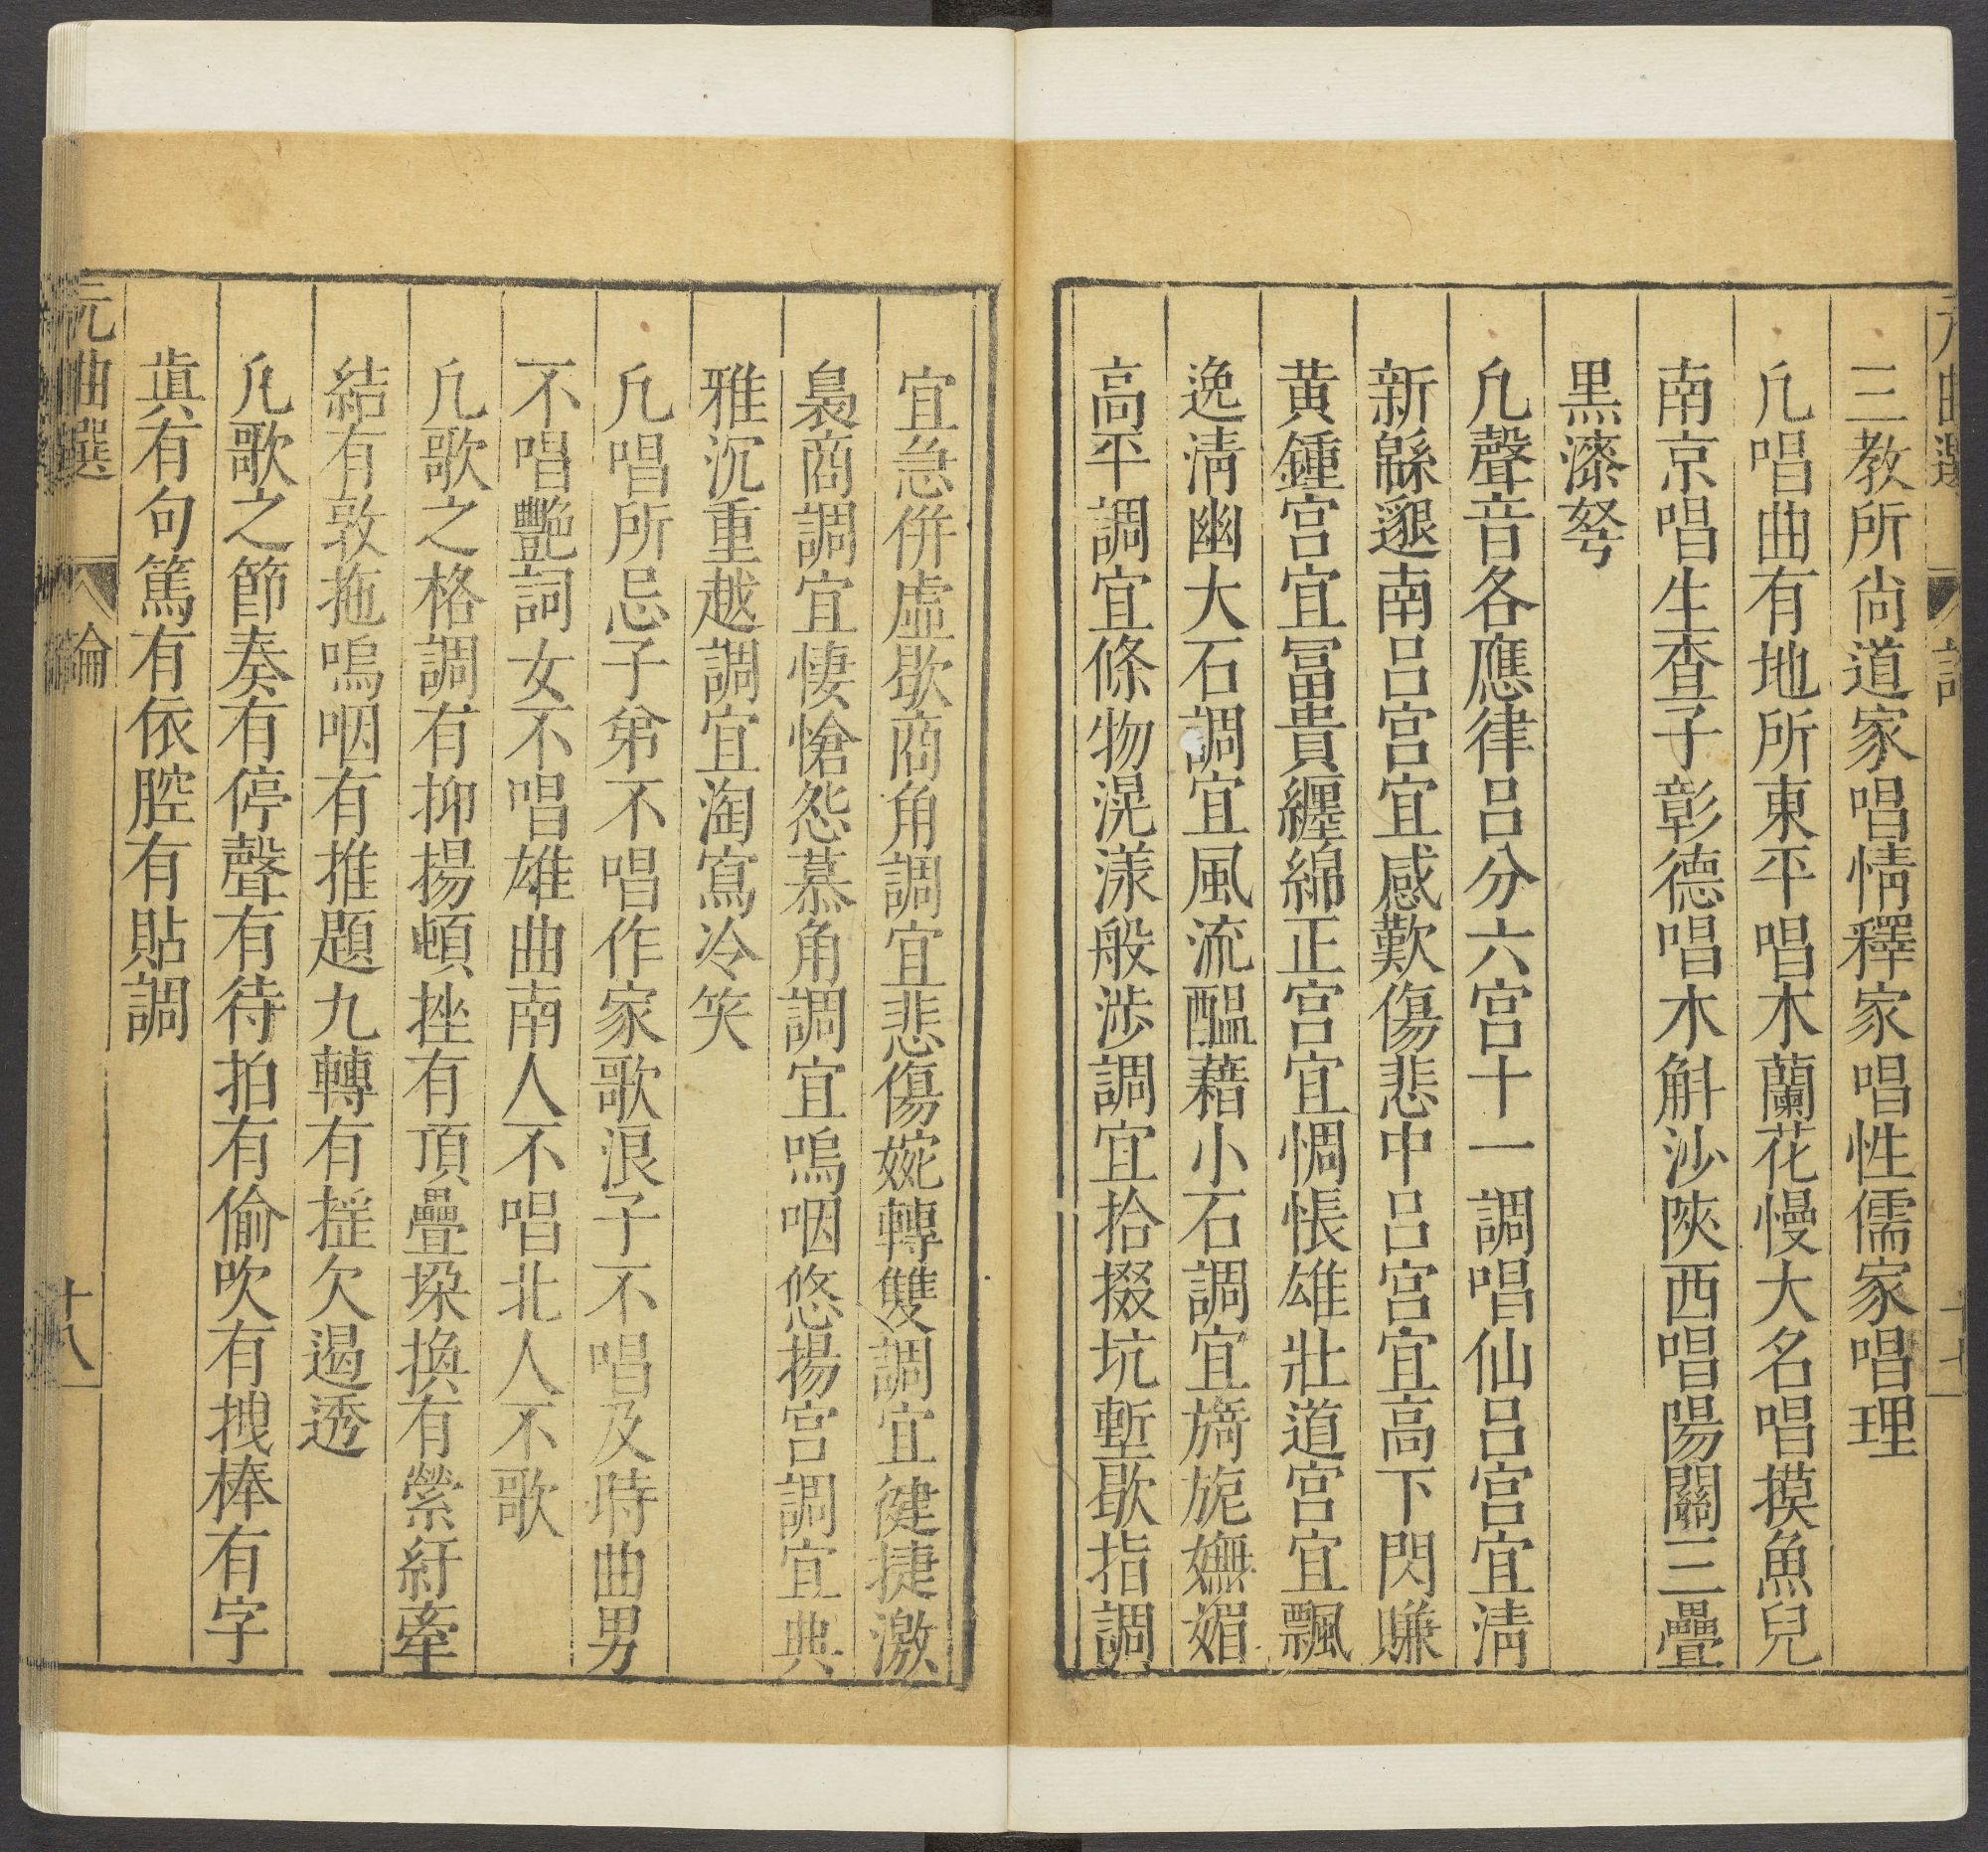 三教所尙道家唱情釋家唱性儒家唱理
凡唱曲有地所東平唱木蘭花慢大名唱摸魚兒
南京唱生查子彰德唱木斛沙陝西唱陽關三疊
黒漆弩
凡聲音各應律呂分六宮十一調唱仙呂宮宜淸
新緜邈南呂宮宜感歎傷悲中呂宮宜高下閃賺
黃鍾宮宜冨貴纒綿正宮宜惆悵雄壯道宮宜飄
逸淸幽大石調宜風流醞藉小石調宜旖旎嫵媚
高平調宜條物滉漾般渉調宜拾掇坑塹歇指調
宜急併虛歇商角調宜悲傷婉轉雙調宜健捷激
裊商調宜悽愴怨慕角調宜嗚咽悠揚宮調宜典
雅沉重越調宜淘寫冷笑
凡唱所忌子弟不唱作家歌浪子不唱及時曲男
不唱艷詞女不唱雄曲南人不唱北人不歌
凡歌之格調有抑揚頓挫有頂疊垛換有縈紆牽
結有敦拖嗚咽有推題九轉有搖欠遏透
凡歌之節奏有停聲有待拍有偷吹有拽棒有字
眞有句篤有依腔有貼調
元曲選
論
十八